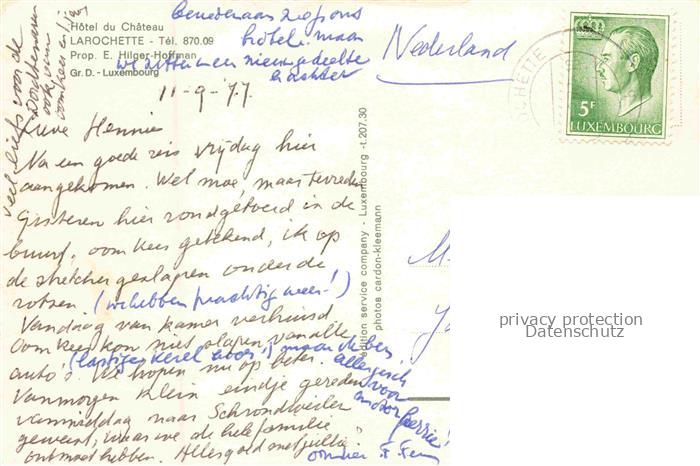 Hôtel du Château
LAROCHETTE - Tél. 870.09
Prop. E. Hilger-Hoffman
Gr. D. - Luxembourg
beneden aan zie je ons
hôtel. maar
we zitten in een nieuw gedeelte
erachter
Nederland
11-9-'77
Lieve Hennie
Na een goede reis vrijdag hier
aangekomen. Wel moe, maar tevreden
Gisteren hier rondgetoerd in de
buurt, oom Kees getekend, ik op
de stretcher geslapen onder de
rotsen. (we hebben prachtig weer!)
Vandaag van kamer verhuisd
Oom Kees kon niet slapen van alle
auto's. We hopen nu op beter.
(lastige kerel hoor!) maar ik ben
allergisch
voor
motor
herrie!
Vanmorgen klein eindje gereden
vanmiddag naar Schrondweiler
geweest, waar we de hele familie
ontmoet hebben. Alles goed met jullie?
Veel liefs voor de
ook van
oom Kees
LAROCHETTE
5F
LUXEMBOURG
edition service company - Luxembourg - t.207.30
photos cardon-kleemann
M
Ja
privacy protection
Datenschutz